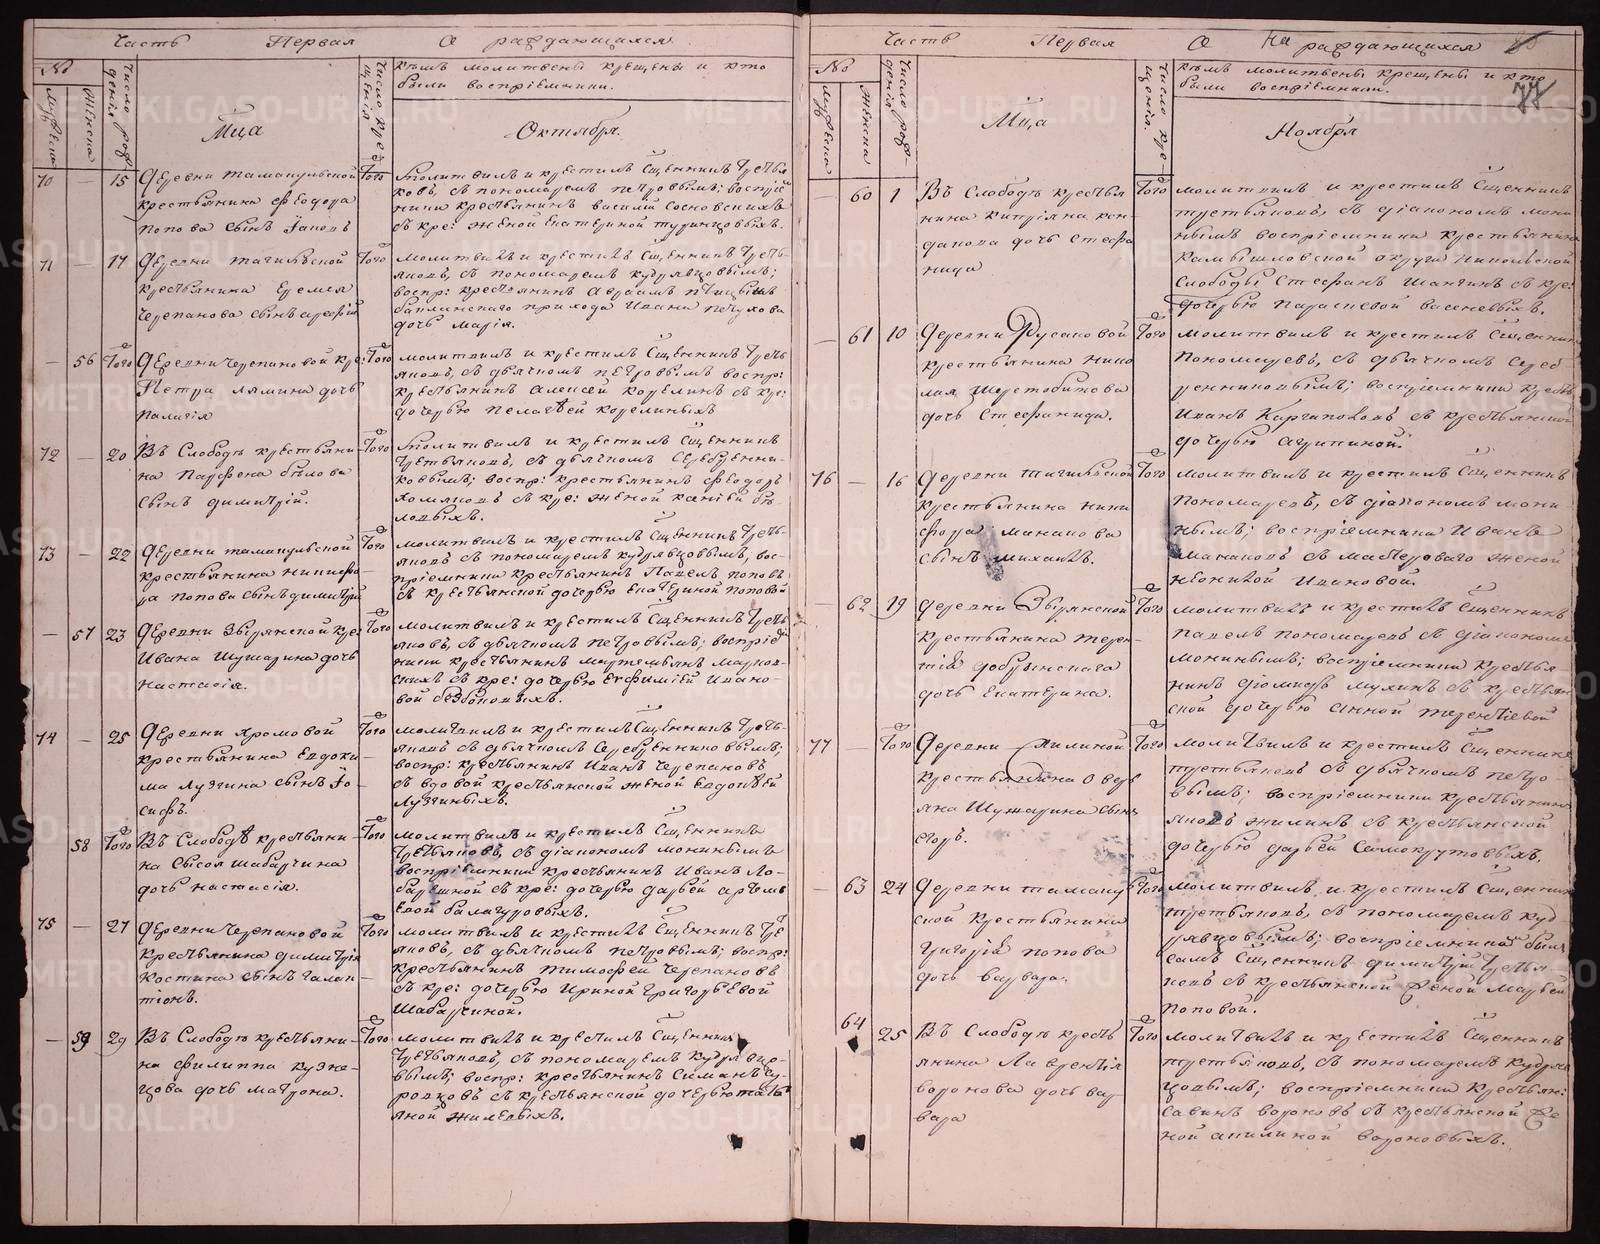 Часть Первая О раждающихся
№
Мужеска
Женска
Число рождения
Число крещенія
кѣмъ молитвены крещены и кто
были воспріемники.
Мца
Октября.
70 — 15 Деревни таманульской
крестьянина феодора
попова сынъ Іаковъ
Того молитвилъ и крестилъ Сщенникъ третья
ковъ, съ пономаремъ петровымъ; воспріем
ники крестьянинъ василій Сосновскихъ
съ кре: женой Екатериной
71 — 17 Деревни тагильской
крестьянина Еремея
Черепанова сынъ
Того молитвилъ и крестилъ Сщенникъ треть-
яковъ, съ пономаремъ кудрявцовымъ;
воспр: крестьянинъ Авраамъ
прихода Ивана петухова
дочь марія.
— 56 Того Деревни Черепановой кре:
Петра лямина дочь
палагія
Того молитвилъ и крестилъ Сщенникъ треть
яковъ, съ дьячкомъ петровымъ воспр:
крестьянинъ Алексей корелинъ съ кре:
дочерью пелагѣей корелиныхъ
72 — 20 Въ Слободѣ крестьяни-
на Парфена былова
сынъ димитрій.
Того молитвилъ и крестилъ Сщенникъ
третьяковъ, съ дьячкомъ Серебренни-
ковымъ; воспр: крестьянинъ феодоръ
хомяковъ съ кре: женой
73 — 22 Деревни таманульской
крестьянина никифо-
ра попова сынъ димитрій
Того молитвилъ и крестилъ Сщенникъ треть-
яковъ съ пономаремъ кудрявцовымъ, вос-
пріемники крестьянинъ Павелъ поповъ
съ крестьянской дочерью Екатериной поповой
— 57 23 Деревни Звѣрянской кре:
Ивана Шушарина дочь
настасія.
Того молитвилъ и крестилъ Сщенникъ треть
яковъ, съ дьячкомъ петровымъ; воспріем
ники крестьянинъ мартемьянъ
съ кре: дочерью Евфиміей Ивано-
вой
74 — 25 Деревни хромовой
крестьянина Евдоки-
ма Лузгина сынъ Іо-
сифъ.
Того молитвилъ и крестилъ Сщенникъ треть-
яковъ съ дьячкомъ Серебренниковымъ;
воспр: крестьянинъ Иванъ Черепановъ
съ вдовой крестьянской женой Евдокѣей
Лузгиныхъ.
58 Того Въ Слободѣ крестьяни-
на Сысоя шабарчина
дочь настасія.
Того молитвилъ и крестилъ Сщенникъ
третьяковъ, съ діакономъ мокинымъ
воспріемники крестьянинъ Иванъ
съ кре: дочерью дарьей артемь
евой балакуровыхъ.
75 — 27 Деревни Черепановой
крестьянина димитрія
костина сынъ галак-
тіонъ.
Того молитвилъ и крестилъ Сщенникъ тре
яковъ, съ дьячкомъ петровымъ; воспр:
крестьянинъ тимофей Черепановъ
съ кре: дочерью Ириной Григорьевой
Шабарчиной.
— 59 29 Въ Слободѣ крестьяни-
на филиппа кузне-
цова дочь матрона.
Того молитвилъ и крестилъ Сщенникъ
третьяковъ, съ пономаремъ кудрявцо-
вымъ; воспр: крестьянинъ Симанъ
съ крестьянской дочерью татья
яной жилевыхъ.
Часть Первая О раждающихся
77
№
Мужеска
Женска
Число рожденія
Число крещенія.
кѣмъ молитвены крещены и кто
были воспріемники.
Мца
Ноября
— 60 1 Въ Слободѣ крестья
нина китріяна кон-
дакова дочь Стефа
нида
Того молитвилъ и крестилъ Сщенникъ
третьяковъ, съ діакономъ моки
нымъ воспріемники крестьянинъ
Камышловской округи никольской
Слободы Стефанъ Шангинъ съ кре:
дочерью параскевой васеневыхъ.
— 61 10 Деревни Русаковой
крестьянина нико
лая Шерстобитова
дочь Стефанида.
Того молитвилъ и крестилъ Сщенникъ
Пономаревъ, съ дьячкомъ Сереб
ренниковымъ; воспріемники крестья
Иванъ Каргаполовъ съ крестьянской
дочерью агрипиной.
76 — 16 Деревни тагильской
крестьянина ники
фора манакова
сынъ михаилъ.
Того молитвилъ и крестилъ Сщенникъ
Пономаревъ, съ діакономъ моки
нымъ; воспріемники Иванъ
манаковъ съ мастероваго женой
неонилой Ивановой.
— 62 19 Деревни Звѣрянской
крестьянина терен-
тія добрынскаго
дочь Екатерина.
Того молитвилъ и крестилъ Сщенникъ
павелъ пономаревъ съ діакономъ
мокинымъ; воспріемники крестья
нинъ діомидъ мухинъ съ крестьян
ской дочерью анной терентіевой
77 — Того Деревни Жилиной
крестьянина
Шушарина сынъ
егоръ.
Того молитвилъ и крестилъ Сщенникъ
третьяковъ съ дьячкомъ петро-
вымъ; воспріемники крестьянинъ
яковъ жилинъ съ крестьянской
дочерью дарьей Самокрутовыхъ.
— 63 24 Деревни таманул
ской крестьянина
григорія попова
дочь варвара.
Того молитвилъ и крестилъ Сщенникъ
третьяковъ, съ пономаремъ куд
рявцовымъ; воспріемники были
самъ Сщенникъ димитрій третья
ковъ съ крестьянской женой марьей
поповой.
64 25 Въ Слободѣ кресть
янина Лаврентія
воронова дочь вар
вара
Того молитвилъ и крестилъ Сщенникъ
третьяковъ, съ пономаремъ кудряв
цовымъ; воспріемники крестьян:
савинъ вороновъ съ крестьянской же
ной акилиной вороновыхъ.
METRIKI.GASO-URAL.RU